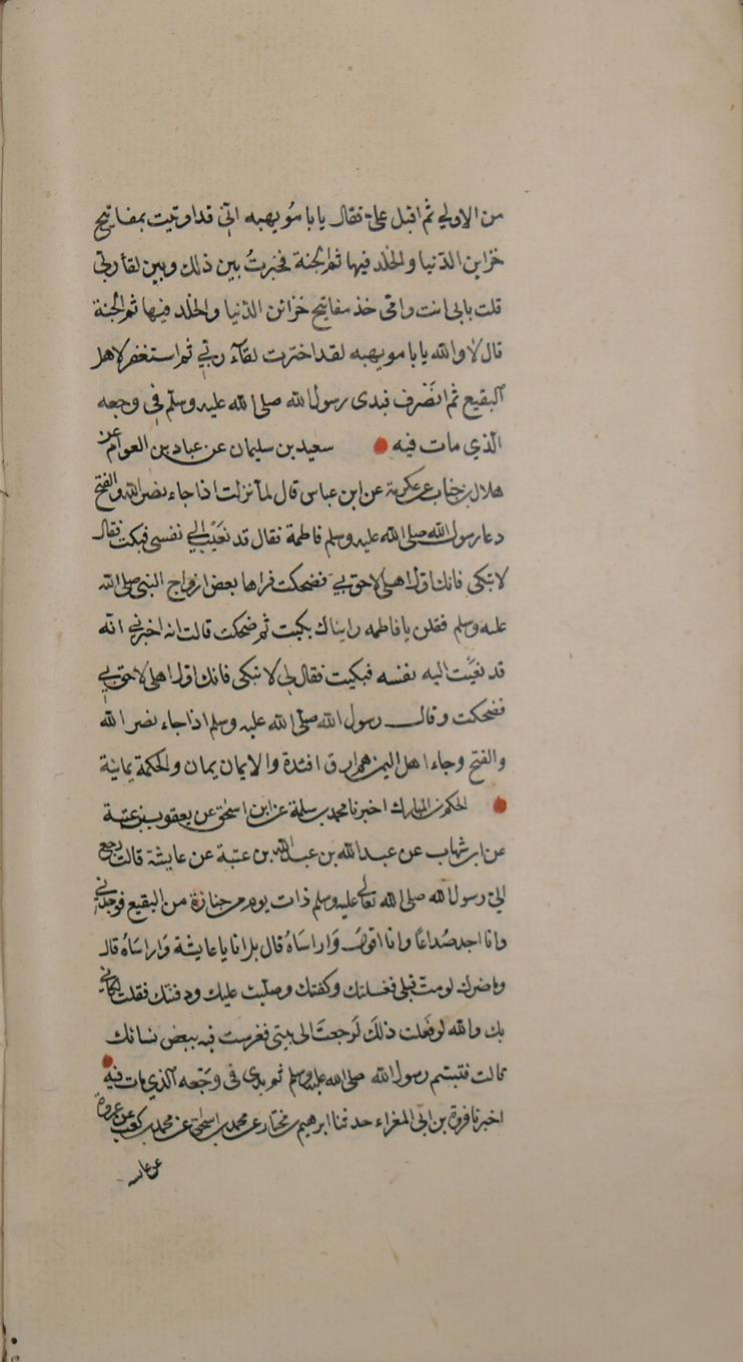 من الاولي ثم اقبل علي فقال يابا مُويهبه انّي قد اوتيت بمفاتيح
خزاين الدّنيا والخلد فيها ثم الجنة فخيرتُ بين ذلك وبين لقأ ربّي
قلت بابي انت وامّي خذ مفاتيح خزائن الدّنيا والخلد فيها ثم الجنة
قال لا والله يابا مويهبه لقد اخترت لقآء ربّي ثم استغفر لاهل
البقيع ثم انصَرف فبدى رسول الله صلى الله عليه وسلّم في وجعه
الّذي مات فيه سعيد بن سليمان عن عباد بن العوام عن
هلال بن خباب عن عكرمة عن ابن عباس قال لمّا نزلت اذا جاء نصر الله والفتح
دعا رسول الله صلى الله عليه وسلم فاطمة فقال قد نعَيْت الي نفسي فبكت فقال
لا تبكي فانك اوّل اهلي لاحق بي فضحكت فراها بعض ازواج النبي صلى الله
عليه وسلم فقلن يا فاطمه رايناك بكيت ثم ضحكت قالت انه اخبرني انّه
قد نعَيت اليه نفسه فبكيت فقال لي لا تبكي فانك اوّل اهلي لاحق بي
فضحكت وقال رسول الله صلّى الله عليه وسلّم اذا جاء نصر الله
والفتح وجاء اهل اليمن هم ارق افئدة والايمان يمان والحكمة يمانية
الحكم بن المبارك اخبرنا محمد بن سلمة عن ابن اسحٰق عن يعقوب بن عتبة
عن ابن شهاب عن عبيد الله بن عبد الله بن عتبة عن عايشة قالت رجع
اليّ رسول الله صلى الله تعالى عليه وسلّم ذات يوم من جنازة من البقيع فوجدني
وانا اجد صُداعًا وانا اقولُ وَاراسَاهُ قال بل انا يا عايشة وَاراسَاهُ قال
وما ضرك لو متّ قبلي فغسلتك وكفنتك وصلّيت عليك ودفنتك فقلت لكاني
بك والله لو فعَلت ذلكَ لَرجعتَ الى بيتي فعرست فيه ببعض نسائك
قالت فتبسّم رسول الله صلى الله عليه وسلّم ثم بدى في وجَعه الّذي مات فيه
اخبرنا فروة بن ابي المغراء حدثنا ابرهيم بن مختار عن محمد بن اسحٰق عن محمد بن كعب عن عروة
عن عائشة